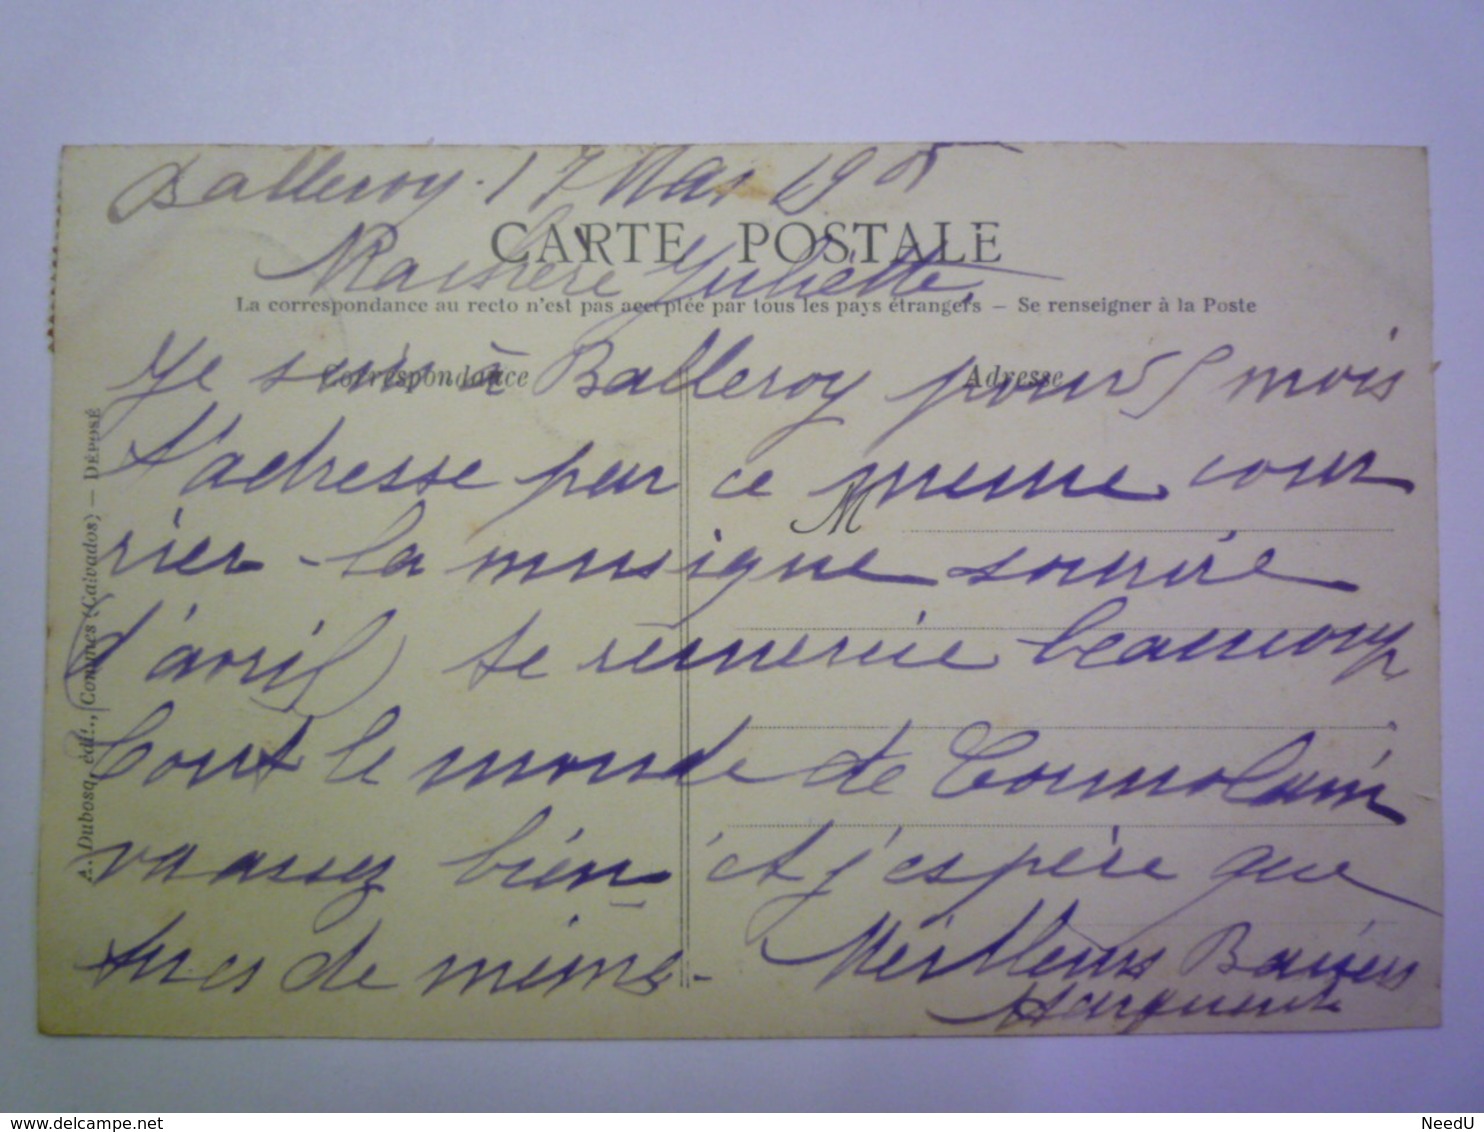 Balleroy. 17 Mai 1905
CARTE POSTALE
Ma chère Juliette,
La correspondance au recto n'est pas acceptée par tous les pays étrangers — Se renseigner à la Poste
Correspondance
Adresse
Je suis à Balleroy pour 5 mois
t'adresse par ce meme cour
M
rier - la musique sourire
d'avril) te remercie beaucoup
tout le monde de Cormolain
va assez bien et j'espère que
tu es de même - Meilleurs Baisers
A. Dubosq, édit., Commes (Calvados) — DÉPOSÉ
NeedU